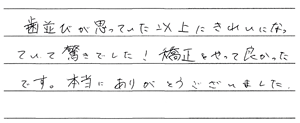 歯並びが思っていた以上にきれいになっ
ていて驚きでした!矯正をやって良かった
です。本当にありがとうございました.